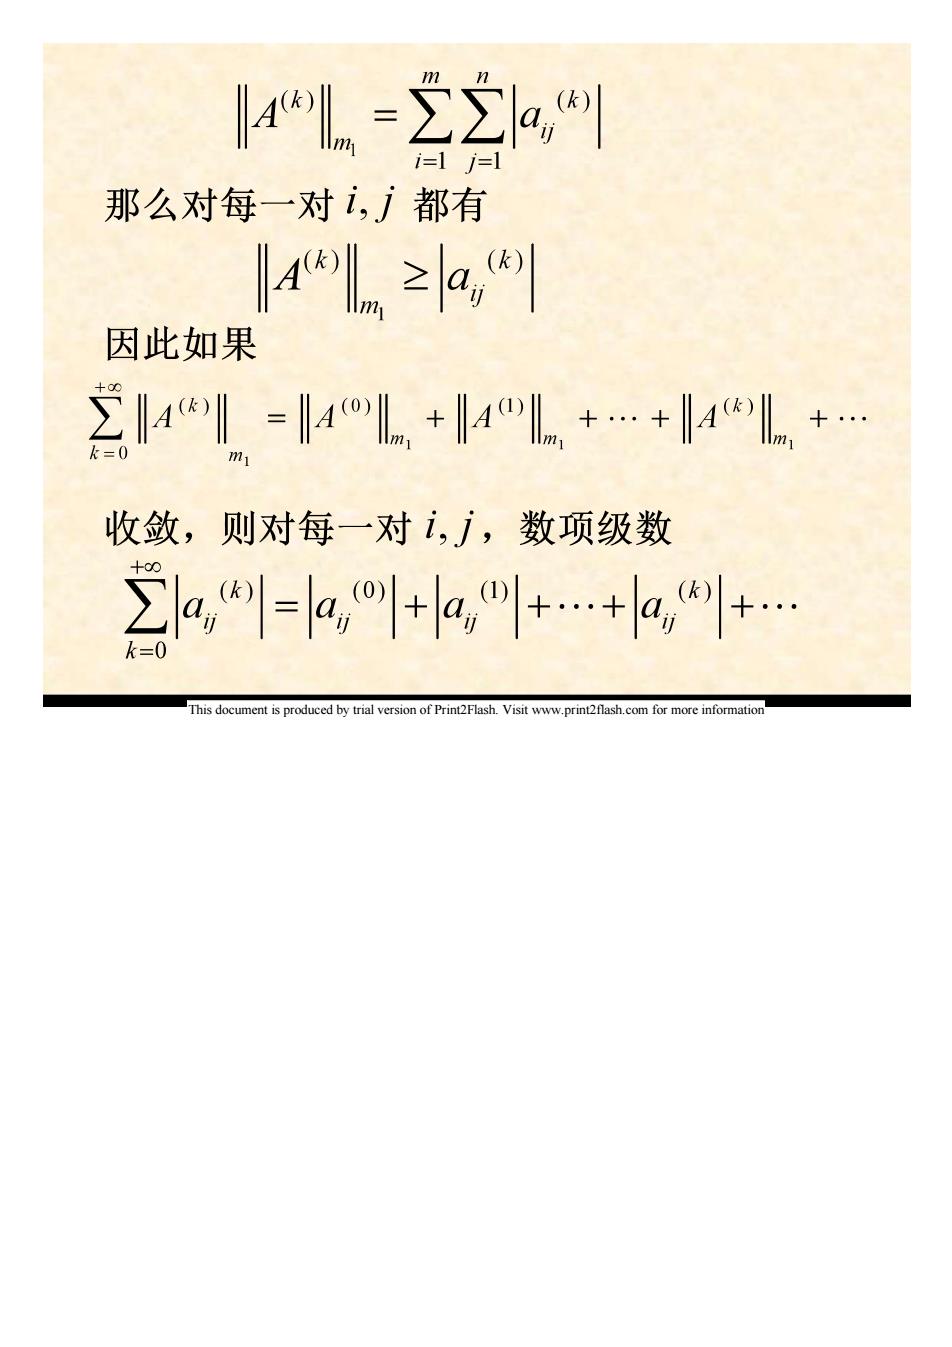 ‖A^{(k)}‖_{m_1} = \sum_{i=1}^{m} \sum_{j=1}^{n} |a_{ij}^{(k)}|
那么对每一对 i, j 都有
‖A^{(k)}‖_{m_1} ≥ |a_{ij}^{(k)}|
因此如果
\sum_{k=0}^{+∞} ‖A^{(k)}‖_{m_1} = ‖A^{(0)}‖_{m_1} + ‖A^{(1)}‖_{m_1} + ⋯ + ‖A^{(k)}‖_{m_1} + ⋯
收敛，则对每一对 i, j，数项级数
\sum_{k=0}^{+∞} |a_{ij}^{(k)}| = |a_{ij}^{(0)}| + |a_{ij}^{(1)}| + ⋯ + |a_{ij}^{(k)}| + ⋯
This document is produced by trial version of Print2Flash. Visit www.print2flash.com for more information